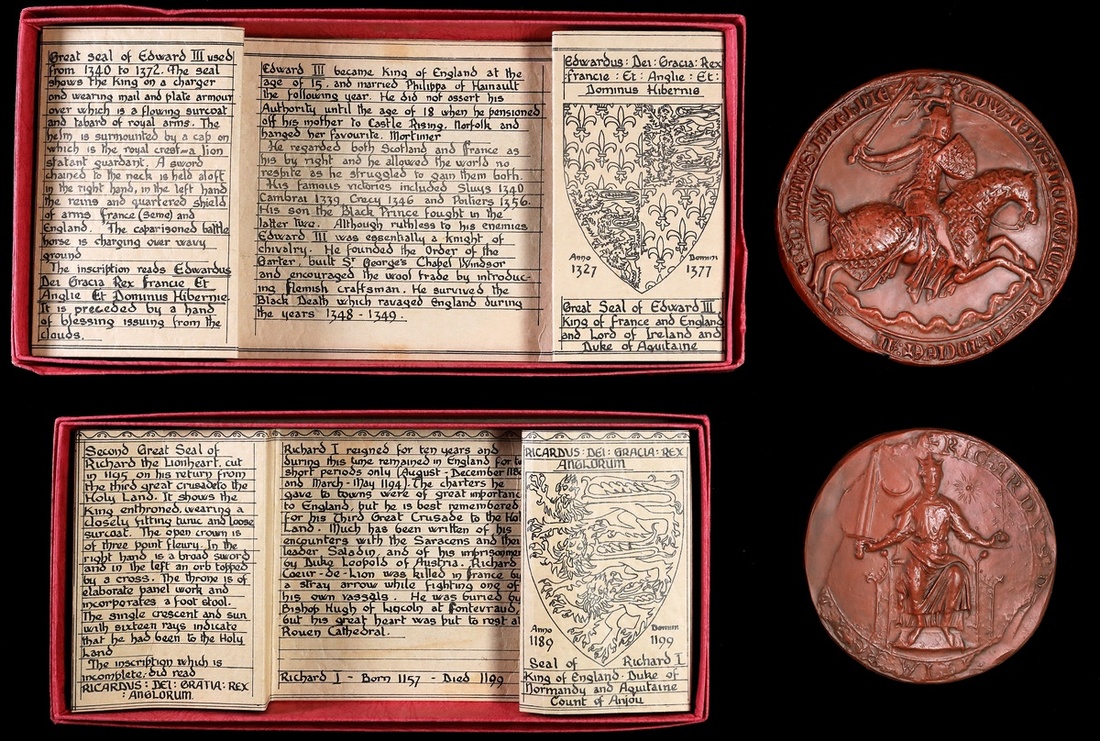 Great seal of Edward III used
from 1340 to 1372. The seal
shows the King on a charger
and wearing mail and plate armour
over which is a flowing surcoat
and tabard of royal arms. The
helm is surmounted by a cap on
which is the royal crest-a lion
statant guardant. A sword
chained to the neck is held aloft
in the right hand, in the left hand
the reins and quartered shield
of arms France (semé) and
England. The caparisoned battle
horse is charging over wavy
ground
The inscription reads Edwardus
Dei Gracia Rex Francie Et
Anglie Et Dominus Hibernie.
It is preceded by a hand
of blessing issuing from the
clouds.
Edward III became King of England at the
age of 15, and married Philippa of Hainault
the following year. He did not assert his
Authority until the age of 18 when he pensioned
off his mother to Castle Rising, Norfolk and
hanged her favourite, Mortimer
He regarded both Scotland and France as
his by right and he allowed the world no
respite as he struggled to gain them both.
His famous victories included Sluys 1340
Cambrai 1339, Crecy 1346 and Poitiers 1356.
His son the Black Prince fought in the
latter two. Although ruthless to his enemies
Edward III was essentially a knight of
chivalry. He founded the Order of the
Garter, built St George's Chapel Windsor
and encouraged the wool trade by introduc-
ing Flemish craftsman. He survived the
Black Death which ravaged England during
the years 1348 - 1349.
Edwardus: Dei: Gracia: Rex
Francie: Et: Anglie: Et:
Dominus Hibernie
Anno Domini
1327 1377
Great Seal of Edward III
King of France and England
and Lord of Ireland and
Duke of Aquitaine
Second Great Seal of
Richard the Lionheart, cut
in 1195 on his return from
the third great crusade to the
Holy Land. It shows the
King enthroned, wearing a
closely fitting tunic and loose
surcoat. The open crown is
of three point fleury. In the
right hand is a broad sword
and in the left an orb topped
by a cross. The throne is of
elaborate panel work and
incorporates a foot stool.
The single crescent and sun
with sixteen rays indicate
that he had been to the Holy
Land
The inscription which is
incomplete, did read
RICARDUS: DEI: GRATIA: REX
: ANGLORUM.
Richard I reigned for ten years and
during this time remained in England for
short periods only (August - December
and March - May 1194). The charters he
gave to towns were of great importance
to England, but he is best remembered
for his Third Great Crusade to the
Land. Much has been written of his
encounters with the Saracens and their
leader Saladin, and of his imprisonment
by Duke Loopold of Austria. Richard
Coeur-de-Lion was killed in France by
a stray arrow while fighting one of
his own vassals. He was buried by
Bishop Hugh of Lincoln at Fontevraud,
but his great heart was put to rest at
Rouen Cathedral.
Richard I - Born 1157 - Died 1199
RICARDUS: DEI: GRACIA: REX
ANGLORUM
Anno Domini
1189 1199
Seal of Richard I
King of England - Duke of
Normandy and Aquitaine
Count of Anjou
RICHARD